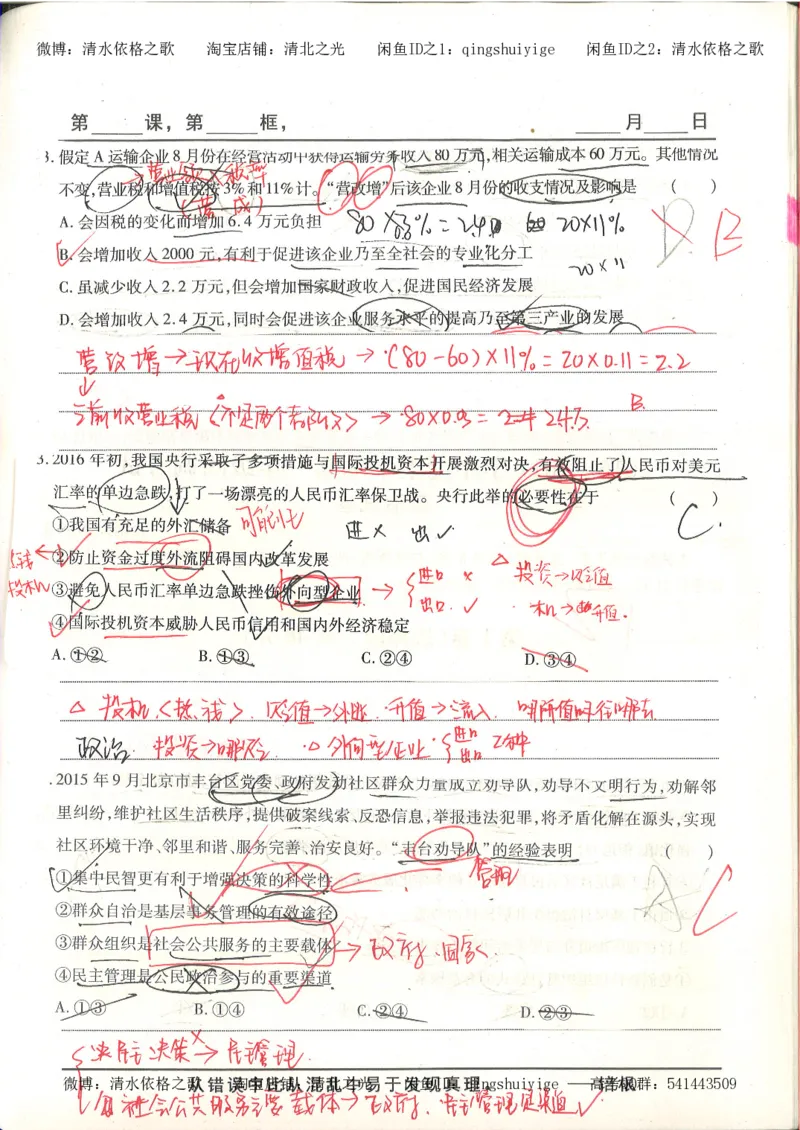 微博：清水依格之歌 淘宝店铺：清北之光 闲鱼ID之1：qingshuiyige 闲鱼ID之2：清水依格之歌
第____课，第____框， ____月____日
3. 假定 A 运输企业 8 月份在经营活动中获得运输劳务收入 80 万元，相关运输成本 60 万元。其他情况
不变，营业税和增值税按 3% 和 11% 计。“营改增”后该企业 8 月份的收支情况及影响是 （ ）
A. 会因税的变化而增加 6.4 万元负担
80×3%=2.4 20×11%
D B
B. 会增加收入 2000 元，有利于促进该企业乃至全社会的专业化分工
20×11
C. 虽减少收入 2.2 万元，但会增加国家财政收入，促进国民经济发展
D. 会增加收入 2.4 万元，同时会促进该企业服务水平的提高乃至第三产业的发展
营改增→现在收增值税→(80-60)×11%=20×0.11=2.2
B.
3. 2016 年初，我国央行采取了多项措施与国际投机资本开展激烈对决，有效阻止了人民币对美元
汇率的单边急跌，打了一场漂亮的人民币汇率保卫战。央行此举的必要性在于 （ ）
C.
①我国有充足的外汇储备 可能性 进× 出✓
②防止资金过度外流阻碍国内改革发展
③避免人民币汇率单边急跌挫伤外向型企业 → 进口 × 出口 ✓
④国际投机资本威胁人民币信用和国内外经济稳定
A. ①② B. ①③ C. ②④ D. ③④
△ 投机〈热钱〉. 贬值→外逃. 升值→流入.
政治. 投资→ △ 外向型企业 进口 出口 2种
. 2015 年 9 月北京市丰台区党委、政府发动社区群众力量成立劝导队，劝导不文明行为，劝解邻
里纠纷，维护社区生活秩序，提供破案线索、反恐信息，举报违法犯罪，将矛盾化解在源头，实现
社区环境干净、邻里和谐、服务完善、治安良好。“丰台劝导队”的经验表明 （ ）
管理
①集中民智更有利于增强决策的科学性
A C
②群众自治是基层事务管理的有效途径
③群众组织是社会公共服务的主要载体 → 政府、国家
④民主管理是公民政治参与的重要渠道
A. ①③ B. ①④ C. ②④ D. ②③
民主决策→民主管理.
微博：清水依格之歌 淘宝店铺：清北之光 qingshuiyige 高考购群：541443509
从错误中比从混乱中易于发现真理 ——培根
社会公共服务主要载体→政府. 民主管理是渠道 ✓